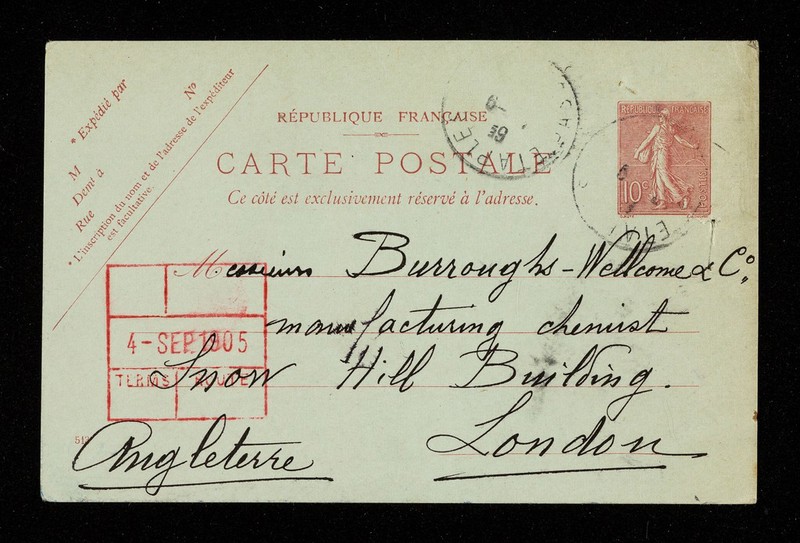 * Expédié par
Nº
M
Demt à
Rue
* L'inscription du nom et de l'adresse de l'expéditeur
est facultative.
RÉPUBLIQUE FRANÇAISE
CARTE POSTALE
Ce côté est exclusivement réservé à l'adresse.
RÉPUBLIQUE FRANÇAISE
10c
Messieurs Burroughs-Wellcome & Co.,
manufacturing chemist
Snow Hill Building.
London
Angleterre
4-SEP.1905
TERMS ROUTE